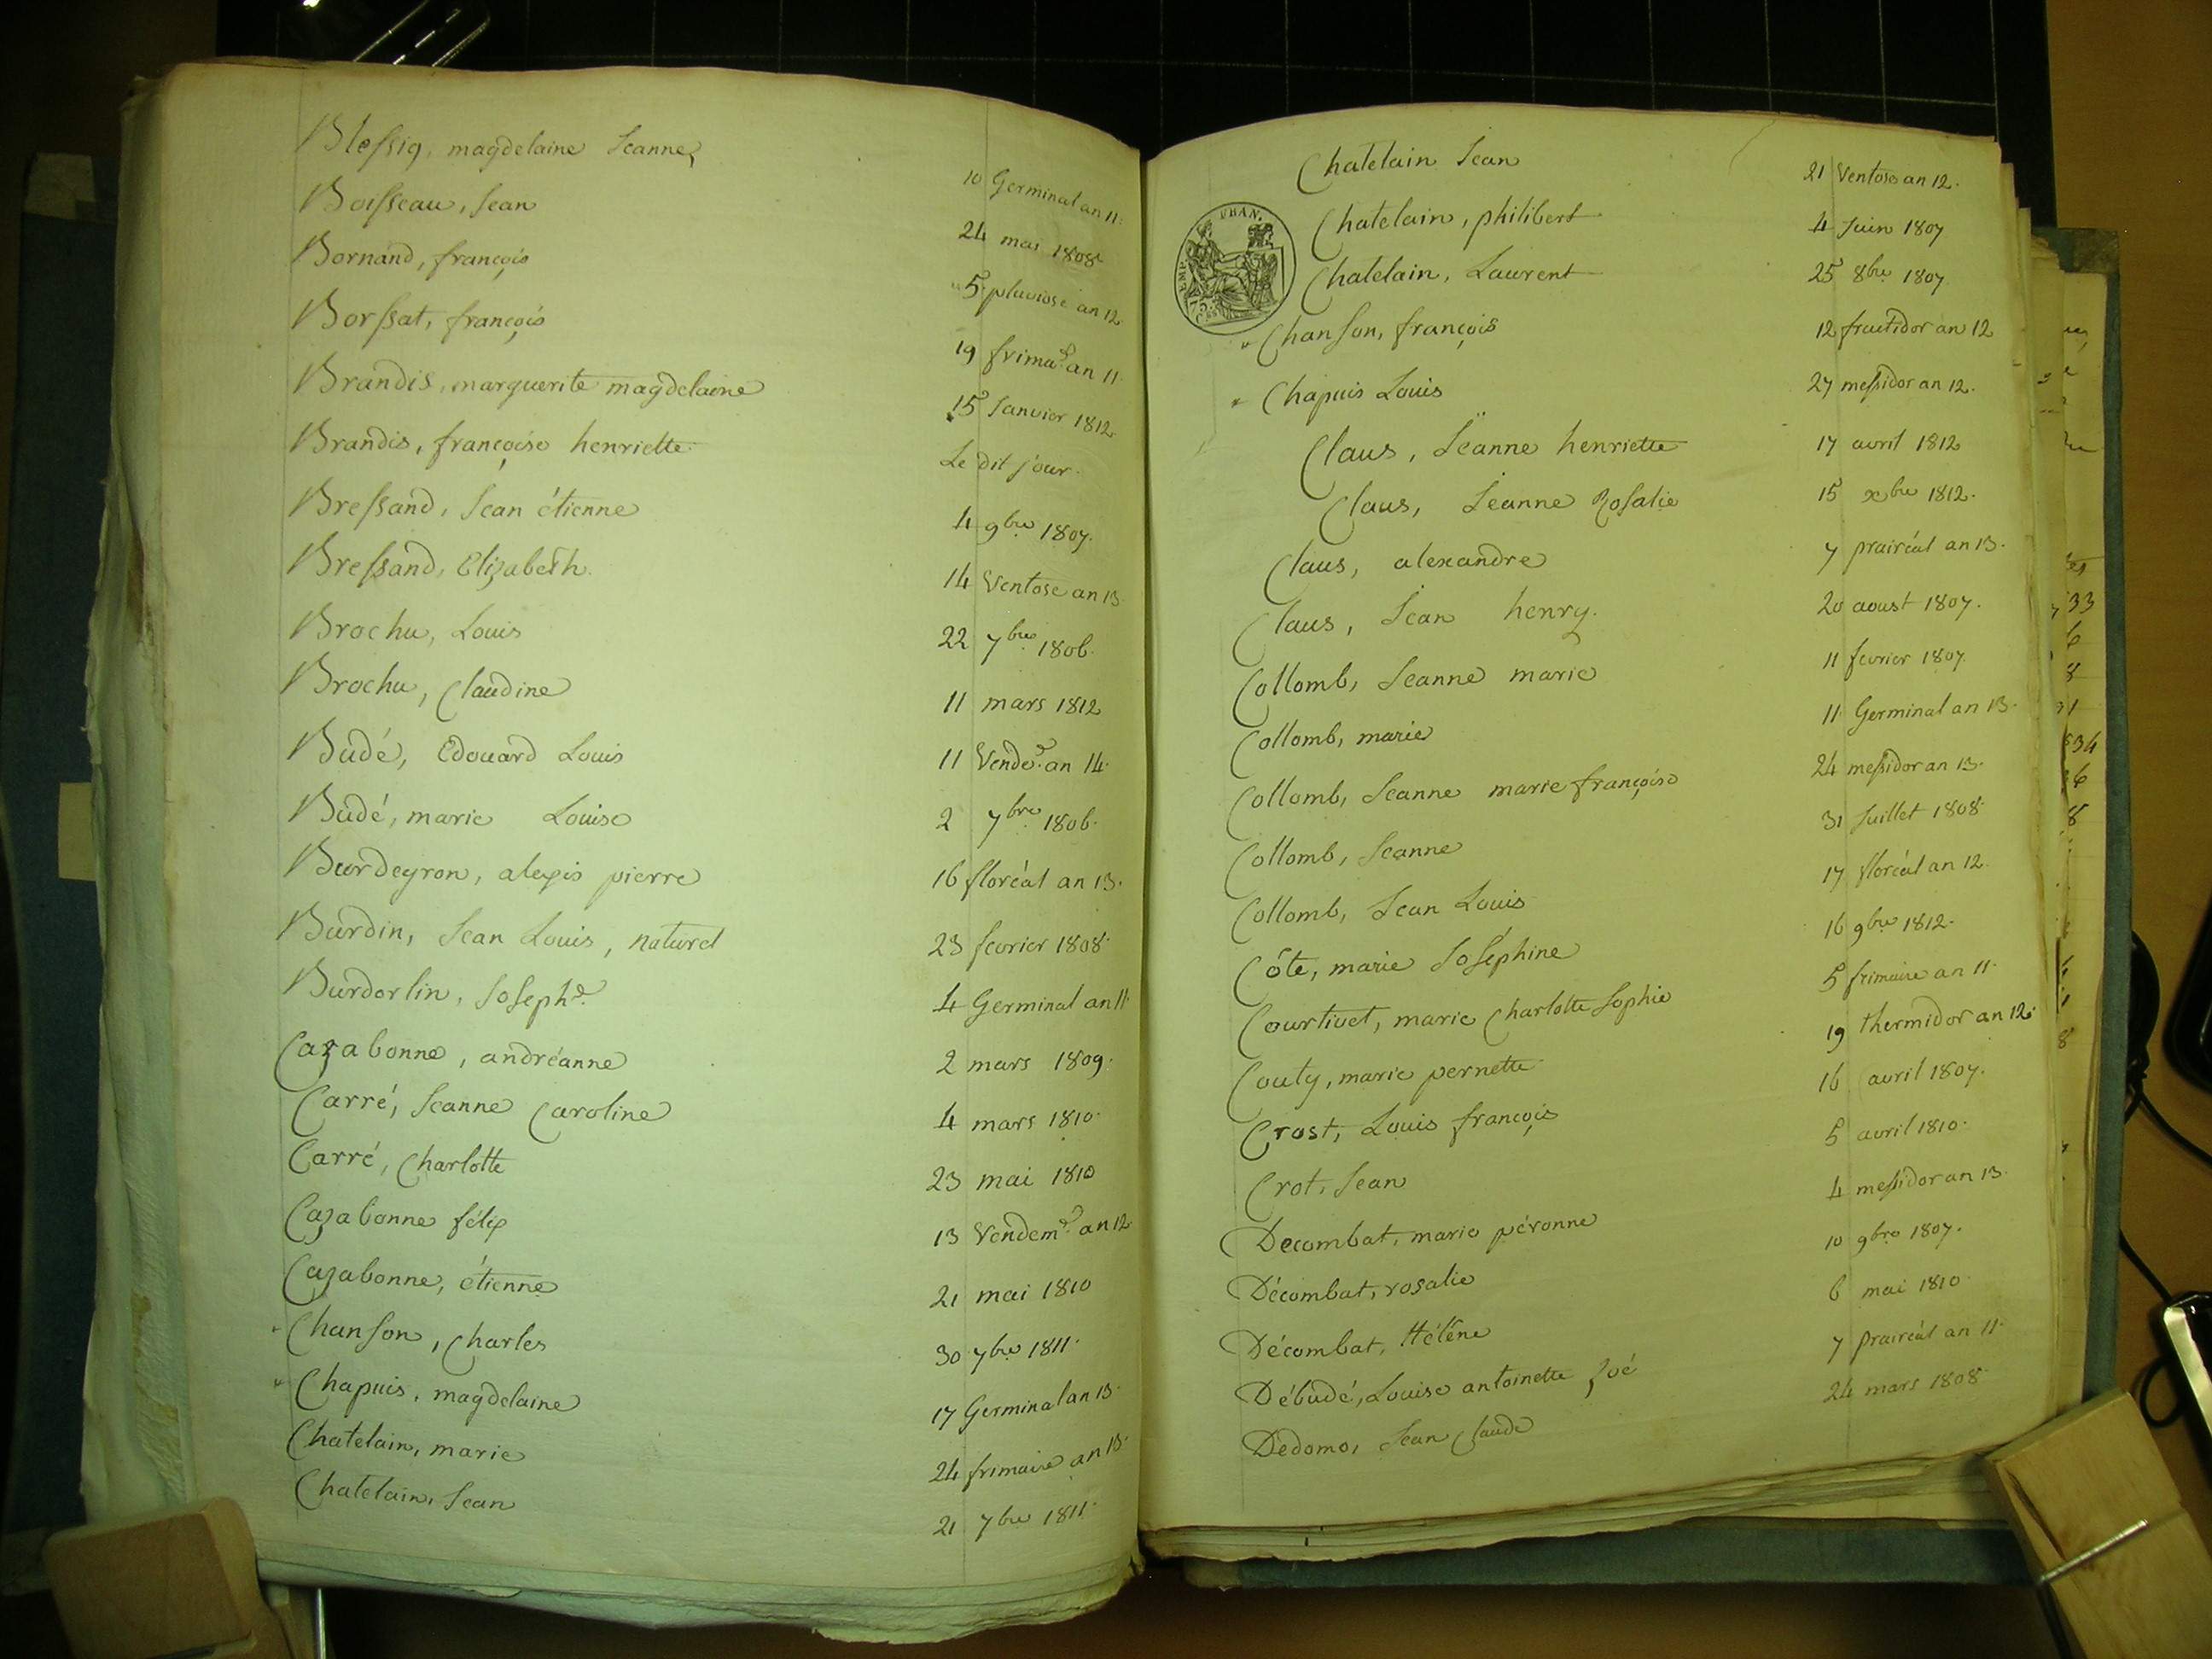 Blessig, magdelaine Jeanne, 10 Germinal an 11.
Boisseau, Jean 24 mai 1808
Bornand, françois 5 pluviose an 12
Borssat, françois 19 frima.e an 11.
Brandis, marguerite magdelaine 15 Janvier 1812
Brandis, françoise henriette Le dit jour.
Bressand, Jean étienne 4 9bre 1807.
Bressand, Elizabeth. 14 Ventose an 13.
Brochu, Louis 22 7bre 1806.
Brochu, Claudine 11 mars 1812
Budé, Edouard Louis 11 Vende.re an 14.
Budé, marie Louise 2 7bre 1806.
Burdeyron, alexis pierre 16 floréal an 13.
Burdin, Jean Louis, naturel 23 fevrier 1808.
Burdorlin, Joseph.e 4 Germinal an 11.
Cazabonne, andréanne 2 mars 1809.
Carré, Jeanne Caroline 4 mars 1810.
Carré, Charlotte 23 mai 1810
Cazabonne félix 13 Vendem.re an 12
Cazabonne, étienne 21 mai 1810
Chanson, Charles 30 7bre 1811.
Chapuis, magdelaine 17 Germinal an 13.
Chatelain, marie 24 frimaire an 13.
Chatelain, Jean 21 7bre 1811.
Chatelain Jean 21 Ventose an 12.
EMP. FRAN.
Chatelain, philibert 4 Juin 1807
Chatelain, Laurent 25 8bre 1807
Chanson, françois 12 fructidor an 12
Chapuis Louis 27 messidor an 12.
Claus, Jeanne henriette 17 avril 1812
Claus, Jeanne Rosalie 15 xbre 1812.
Claus, alexandre 7 prairéal an 13.
Claus, Jean henry. 20 aoust 1807.
Collomb, Jeanne marie 11 fevrier 1807.
Collomb, marie 11 Germinal an 13.
Collomb, Jeanne marie françoise 24 messidor an 13.
Collomb, Jeanne 31 Juillet 1808
Collomb, Jean Louis 17 floréal an 12.
Côte, marie Joséphine 16 9bre 1812.
Courtivet, marie Charlotte Sophie 5 frimaire an 11.
Couty, marie pernette 19 thermidor an 12.
Crost, Louis françois 16 avril 1807.
Crot, Jean 5 avril 1810.
Decombat, marie péronne 4 messidor an 13.
Décombat, rosalie 10 9bre 1807.
Décombat, Hélène 6 mai 1810
Débudé, Louise antoinette Zoé 7 prairéal an 11.
Dedomo, Jean Claude 24 mars 1808